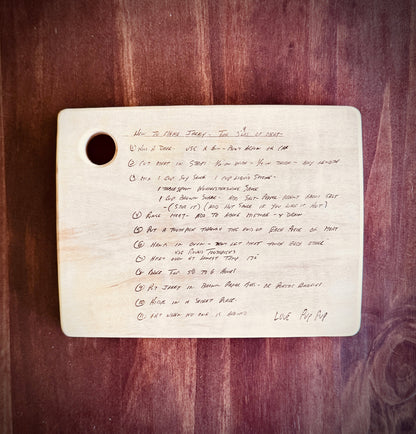 How To Make Jerky - Ten Lbs of Meat
① Kill A Deer. Use A Gun - Don't Bean or Car
② Cut Meat in Strips - 3/4 in Wide - 1/4 in Thick - Any Length
③ Mix 1 Cup Soy Sauce 1 Cup Liquid Smoke -
1 Tablespoon Worcestershire Sauce
1 Cup Brown Sugar - Add Salt Pepper Season Salt
- (Stir it) (Add Hot Sauce if You Like it Hot)
④ Rinse Meat - Add To Above Mixture - 4 Days
⑤ Put A Toothpick Through the End of Each Piece of Meat
⑥ Hang in Oven - Don't Let Meat Touch Each Other
Use Round Toothpicks
⑦ Heat Oven at Lowest Temp 175°
⑧ Bake Til 5 to 6 Hours
⑨ Put Jerky in Brown Paper Bags - or Plastic Baggies
⑩ Hide in A Secret Place.
⑪ Eat When No One is Around
Love Pup Pup